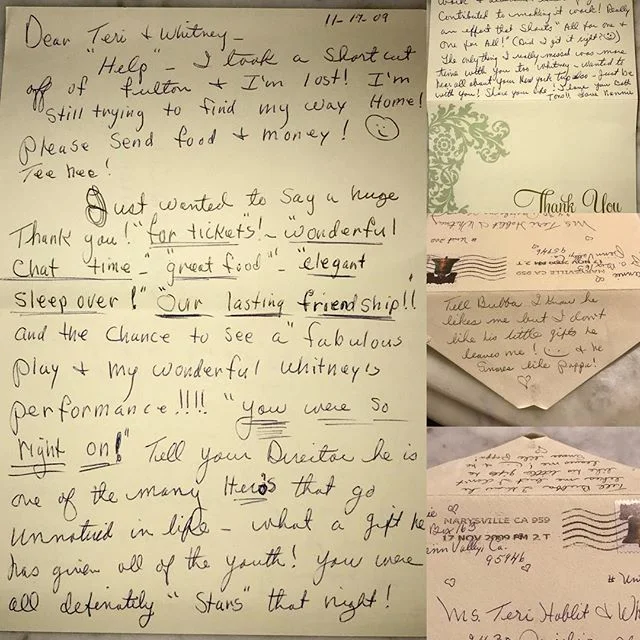 11-17-09
Dear Teri & Whitney -
"Help" - I took a short cut
off of Fulton & I'm lost! I'm
still trying to find my way Home!
Please send food & money! ☺
Tee hee!
Just wanted to say a huge
Thank you! "for tickets"! - "wonderful
chat time - "great food" "elegant
sleep over!" "Our lasting friendship!!
and the chance to see a "fabulous
play & my wonderful Whitney's
performance!!!! "you were so
right on!" Tell your Director he is
one of the many Hero's that go
unnoticed in life - what a gift he
has given all of the youth! You were
all definately "Stars" that night!
contributed to making it work! Really
an effort that Shouts "All for one &
one for All!" (And I got it right! ☺)
The only thing I really missed was more
time with you too Whitney - wanted to
hear all about your New York trip
with you!
Thank You
Ms. Teri Hoblit & Whitney
95946
MARYSVILLE CA 959
17 NOV 2009 PM 2 T
Tell Bubba I know he
likes me but I don't
like his little gifts he
leaves me! ☺ & he
snores like Pappa!
♡
Tell Bubba I know he
likes me but I don't
like his little gifts he
leaves me! ☺ & he
snores like Pappa!
MARYSVILLE CA 959
17 NOV 2009 PM 2 T
Box 163
Penn Valley, Ca.
95946
Ms. Teri Hoblit & Wh